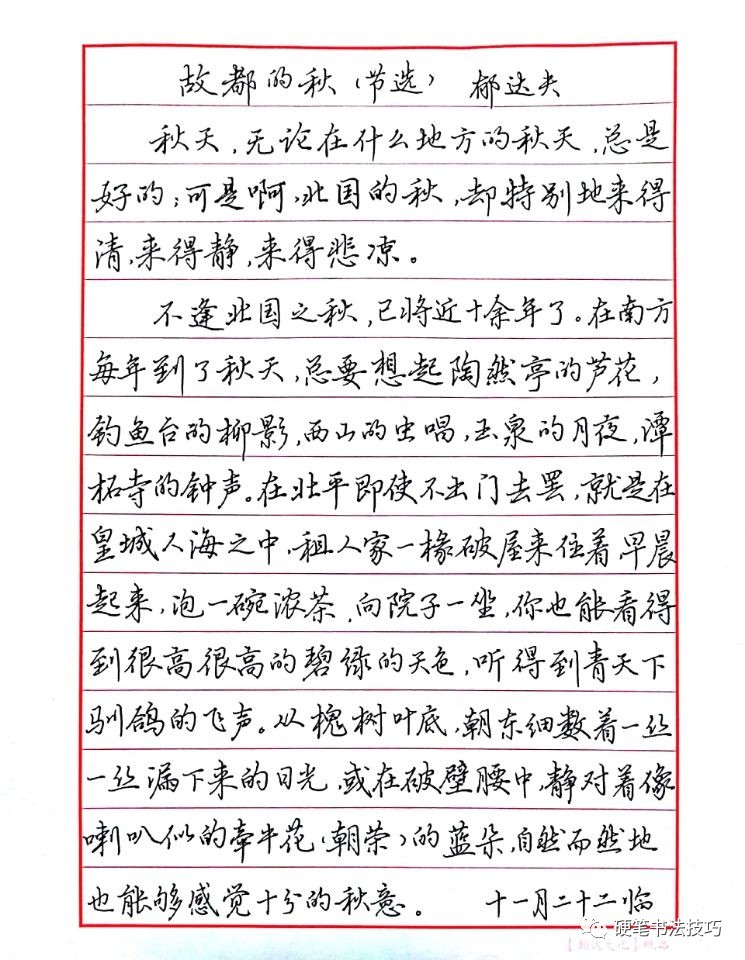 故都的秋（节选） 郁达夫
秋天，无论在什么地方的秋天，总是
好的；可是啊，北国的秋，却特别地来得
清，来得静，来得悲凉。
不逢北国之秋，已将近十余年了。在南方
每年到了秋天，总要想起陶然亭的芦花，
钓鱼台的柳影，西山的虫唱，玉泉的月夜，潭
柘寺的钟声。在北平即使不出门去罢，就是在
皇城人海之中，租人家一椽破屋来住着，早晨
起来，泡一碗浓茶，向院子一坐，你也能看得
到很高很高的碧绿的天色，听得到青天下
驯鸽的飞声。从槐树叶底，朝东细数着一丝
一丝漏下来的日光，或在破壁腰中，静对着像
喇叭似的牵牛花（朝荣）的蓝朵，自然而然地
也能够感觉十分的秋意。 十一月二十二临
硬笔书法技巧